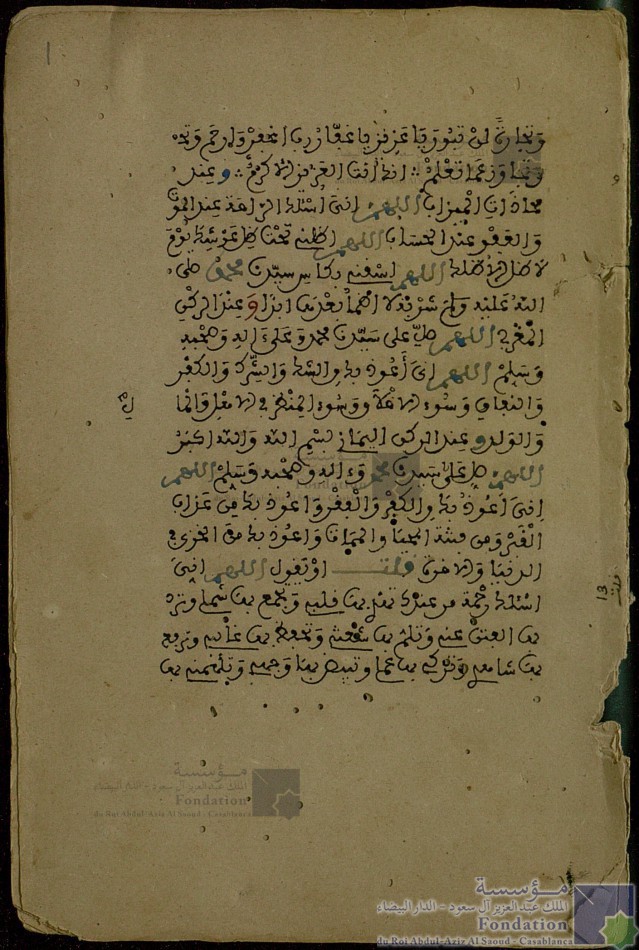 وتجارة لن تبور يا عزيز يا غفار رب اغفر وارحم
وتجاوز عما تعلم انك انت العزيز الاكرم وعند
محاذات الميزاب اللهم اني اسئلك الراحة عند الموت
والعفو عند الحساب اللهم اظلني تحت ظل عرشك يوم
لا ظل الا ظلك اللهم اسقني بكاس سيدنا محمد صلى
الله عليه وسلم شربة لا اظمأ بعدها ابدا وعند الركن
اللهم صل على سيدنا محمد وعلى اله وصحبه
وسلم اللهم اني أعوذ بك من الشك والشرك والكفر
والنفاق وسوء الاخلاق وسوء المنظر في الاهل والمال
والولد وعند الركن اليماني بسم الله والله اكبر
اللهم صل على سيدنا محمد وءاله وصحبه وسلم اللهم
اني أعوذ بك من الكفر والفقر واعوذ بك من عذاب
القبر ومن فتنة المحيا والممات واعوذ بك من الخزي في
الدنيا والاخرة قلت او تقول اللهم اني
اسئلك رحمة من عندك تهدي بها قلبي وتجمع بها شملي وترد
بها الفتن عني وتلم بها شعثي وتحفظ بها غائبي وترفع
بها شاهدي وتزكي بها عملي وتبيض بها وجهي وتلهمني بها
مؤسسة
الملك عبد العزيز آل سعود - الدار البيضاء
Fondation
du Roi Abdul-Aziz Al Saoud - Casablanca